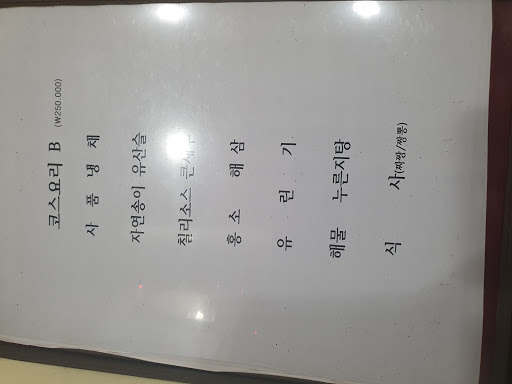 코스요리 B (W250.000)
사 품 냉 채
자연송이 유산슬
칠리소스 큰새우
홍 소 해 삼
유 린 기
해물 누룬지탕
식 사(짜짱/짱뽕)